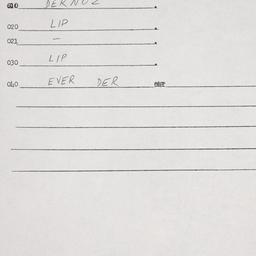 010 DERNOZ .
020 LIP .
021 — .
030 LIP .
040 EVER DER